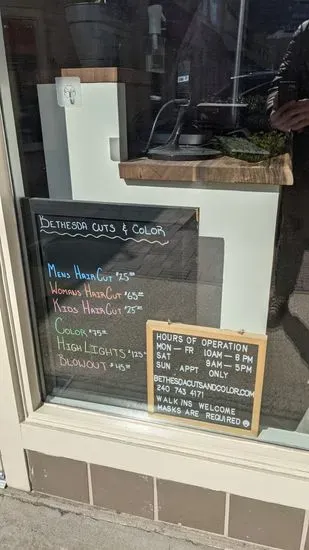 BETHESDA CUTS & COLOR
MENS HAIRCUT $25.00
WOMANS HAIRCUT $65.00
KIDS HAIRCUT $25.00
COLOR $75.00
HIGHLIGHTS $125.00
BLOWOUT $45.00
HOURS OF OPERATION
MON - FRI 10AM - 8PM
SAT 9AM - 5PM
SUN APPT ONLY
BETHESDACUTSANDCOLOR.COM
240 743 4171
WALK INS WELCOME
MASKS ARE REQUIRED